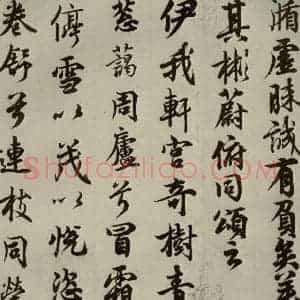 循虛昧誠有負矣美
其彬蔚俯同頌云
伊我軒宮奇樹青
葱藹周廬兮冒霜
停雪以茂以悅恣
卷舒兮連枝同榮
Shufaziliao.com